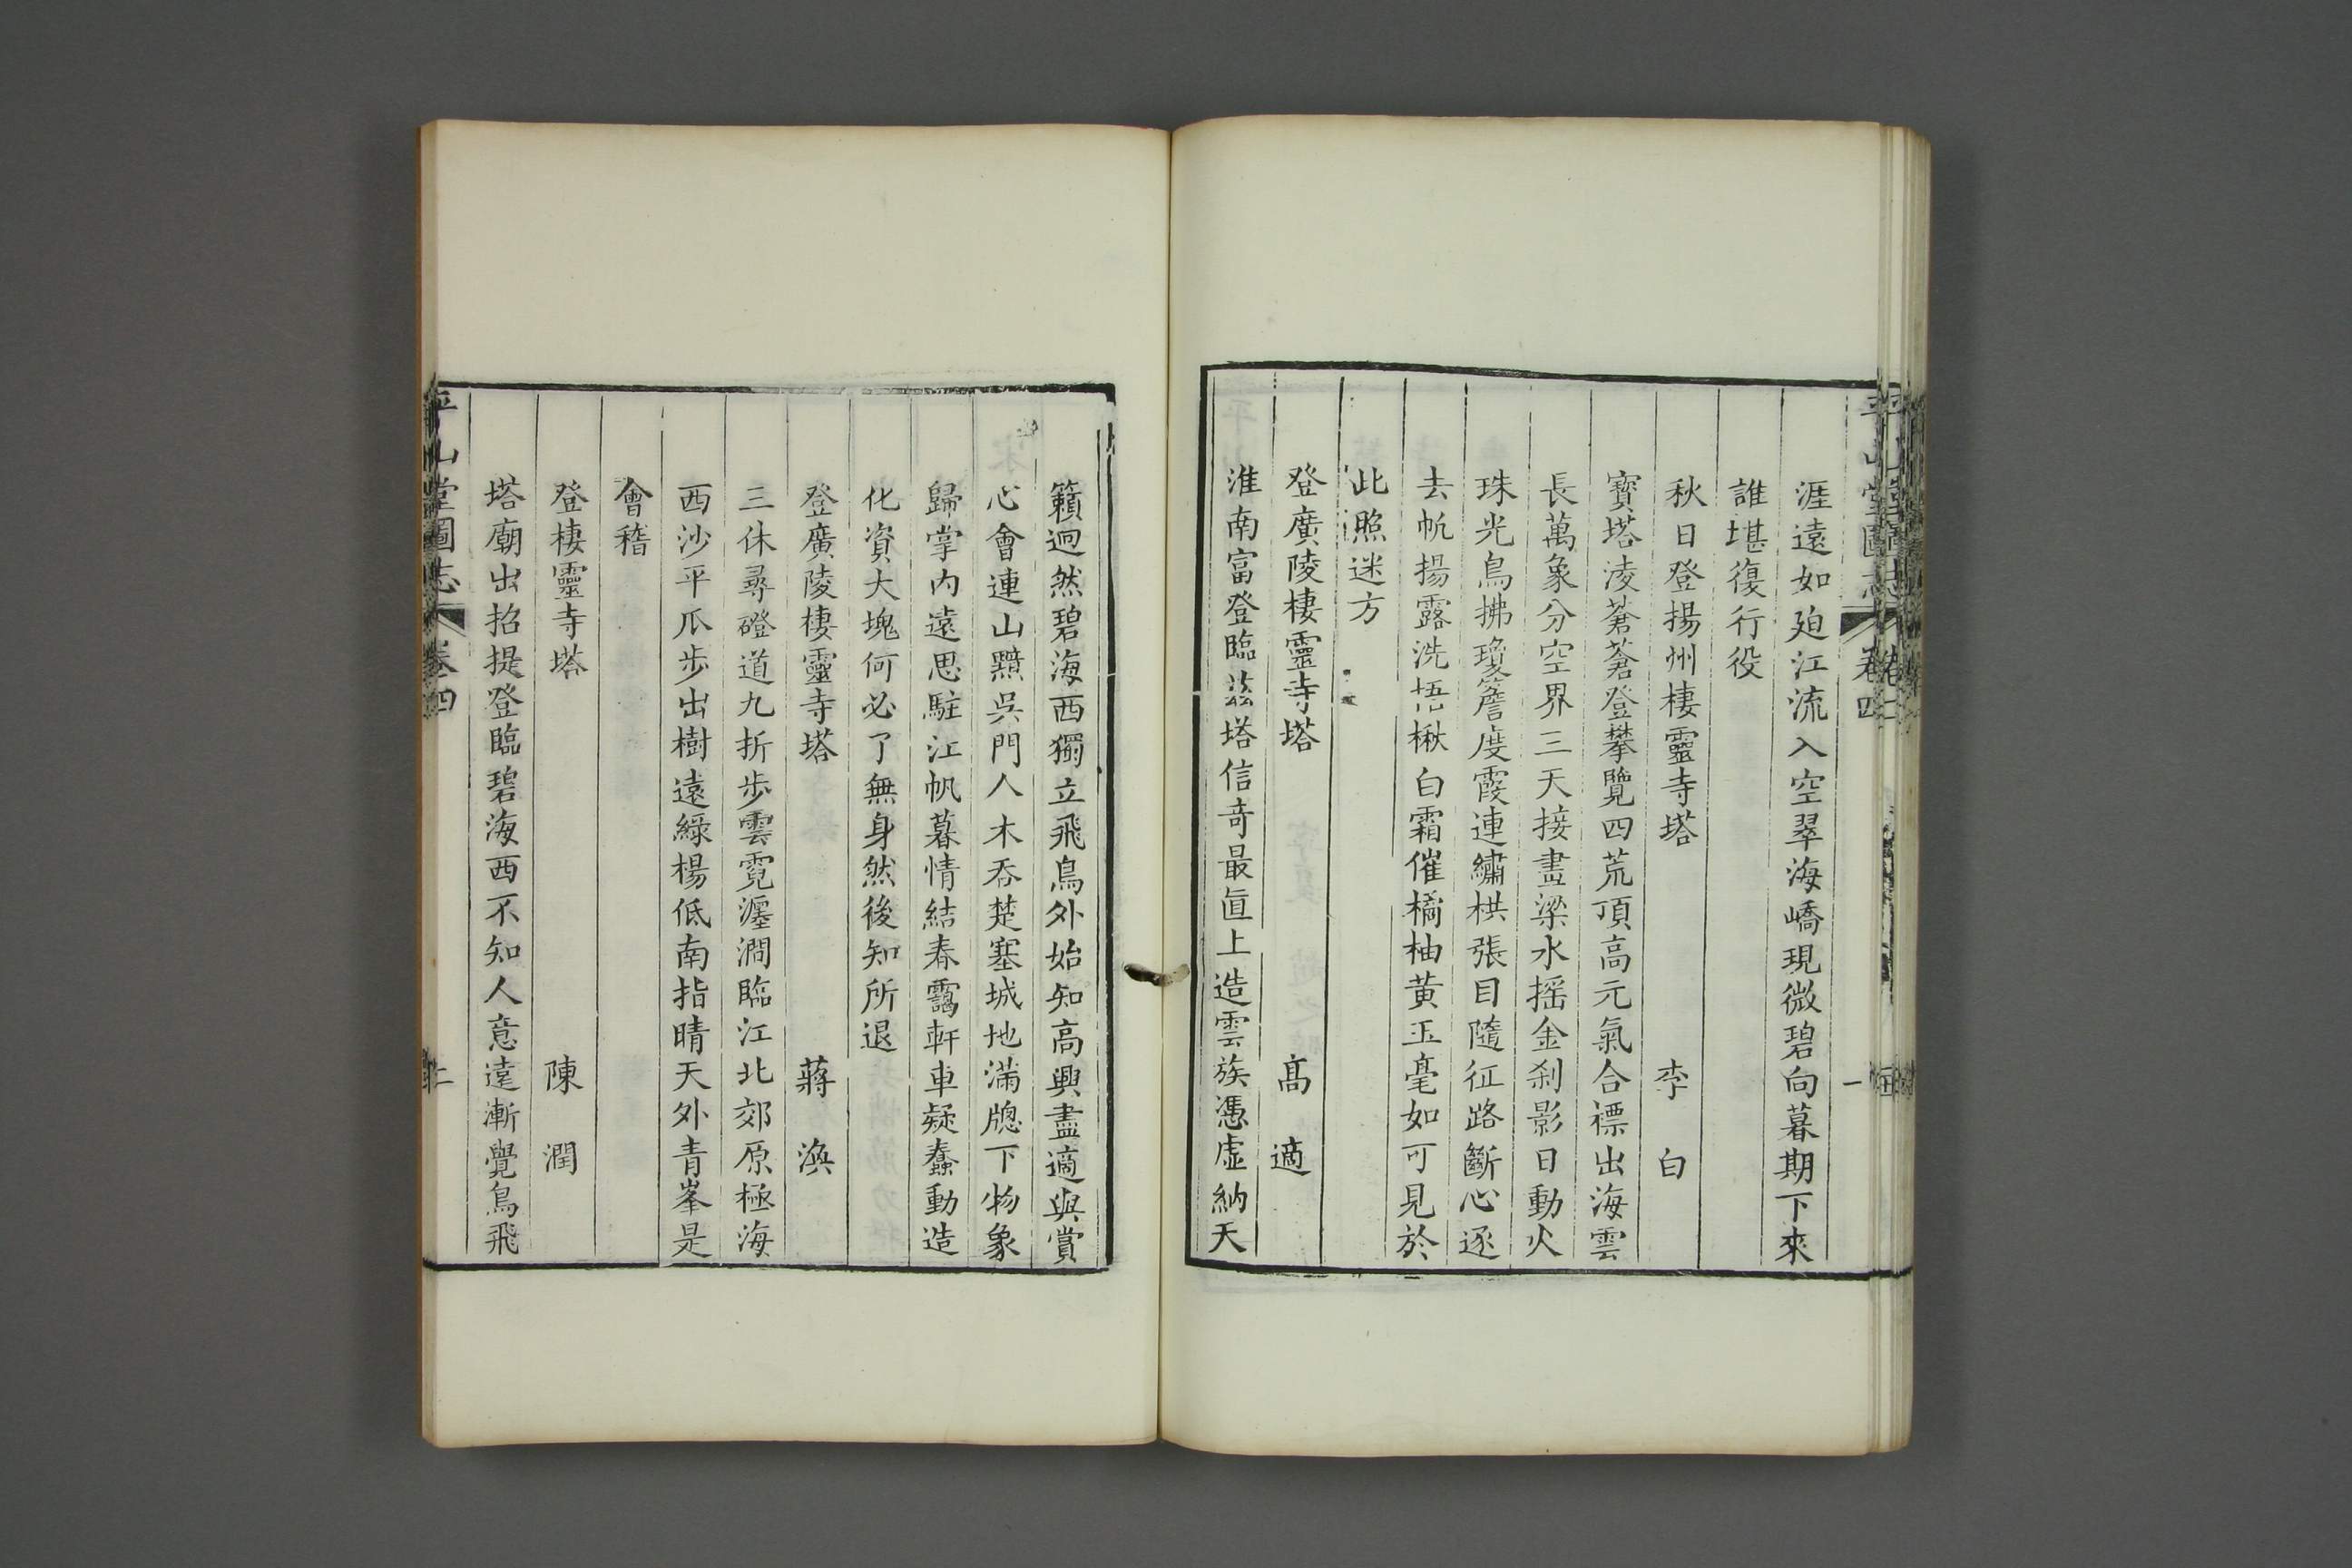 平山堂圖志 卷四 一
涯遠如廹江流入空翠海嶠現微碧向暮期下來
誰堪復行役
秋日登揚州棲靈寺塔 李白
寶塔淩蒼蒼登攀覽四荒頂高元氣合標出海雲
長萬象分空界三天接畫梁水搖金刹影日動火
珠光鳥拂瓊簷度霞連繡栱張目隨征路斷心逐
去帆揚露洗梧楸白霜催橘柚黃玉毫如可見於
此照迷方
登廣陵棲靈寺塔 高適
淮南富登臨茲塔信奇最直上造雲族憑虛納天
籟迥然碧海西獨立飛鳥外始知高興盡適與賞
心會連山黯吳門人木吞楚塞城地滿牕下物象
歸掌內遠思駐江帆暮情結春靄軒車疑蠢動造
化資大塊何必了無身然後知所退
登廣陵棲靈寺塔 蔣渙
三休尋磴道九折步雲霓瀍澗臨江北郊原極海
西沙平瓜步出樹遠綠楊低南指晴天外青峯是
會稽
登棲靈寺塔 陳潤
塔廟出招提登臨碧海西不知人意遠漸覺鳥飛
平山堂圖志 卷四 二